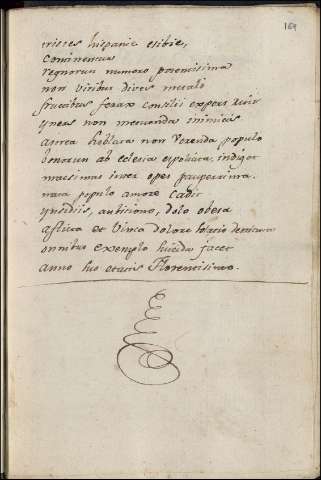 169
tristes hispanie exibie,
Continentus
regnorum numero potentisima
non viribus dives metalo
fructibus ferax consilii expers viris
ynens non metuenda inimicis
aurea non Verenda populo
bonorum ab eclesia expoliata, indiget
maximas inter opes pauperrima.
nata populo amore Cadit
ynsidiis, autiono, dolo obesa
aflicta et Vinca dolore
omnibus exemplo jacet
anno suo etatis Florentisimo.